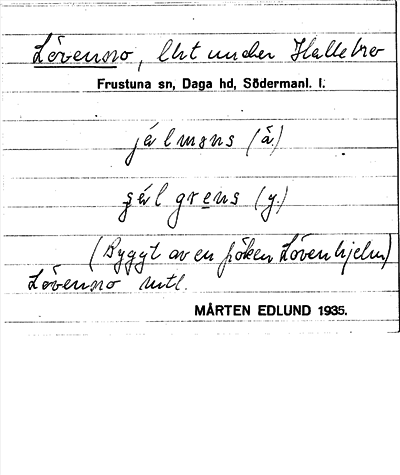 Lövensro, lht under Hallebro
Frustuna sn, Daga hd, Södermanl. l.
jálmsns (ä.)
gál grens (y.)
(Byggt av en fröken Lövenhjelm)
Lövensro mtl.
MÅRTEN EDLUND 1935.